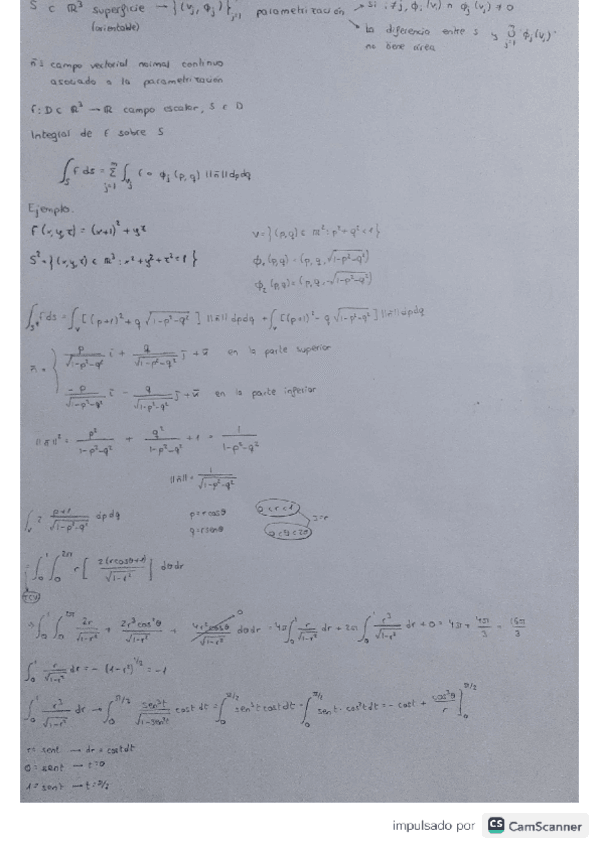 S ⊂ ℝ³ superficie → {(V_j, φ_j)}_{j=1} parametrización → Si i≠j, φ_i(V_i) ∩ φ_j(V_j) ≠ 0
(orientable)
La diferencia entre S y ⋃_{j=1}^m φ_j(V_j)
no tiene área
n̄ ≡ campo vectorial normal continuo
asociado a la parametrización
f: D ⊂ ℝ³ → ℝ campo escalar, S ⊂ D
Integral de f sobre S
∫_S f ds = Σ_{j=1}^m ∫_{V_j} f∘φ_j(p,q) ||n̄|| dpdq
Ejemplo.
f(x,y,z) = (x+1)² + yz
V = {(p,q) ⊂ ℝ²: p²+q²<1}
S² = {(x,y,z) ⊂ ℝ³: x²+y²+z²=1}
φ₁(p,q) = (p,q,√(1-p²-q²))
φ₂(p,q) = (p,q,-√(1-p²-q²))
∫_{S²} f ds = ∫_V [(p+1)² + q√(1-p²-q²)] ||n̄|| dpdq + ∫_V [(p+1)² - q√(1-p²-q²)] ||n̄|| dpdq
n̄ = { p/√(1-p²-q²) ī + q/√(1-p²-q²) j̄ + k̄ en la parte superior
-p/√(1-p²-q²) ī - q/√(1-p²-q²) j̄ + k̄ en la parte inferior
||n̄||² = p²/(1-p²-q²) + q²/(1-p²-q²) + 1 = 1/(1-p²-q²)
||n̄|| = 1/√(1-p²-q²)
∫_V 2 (p+1)/√(1-p²-q²) dpdq p=rcosθ 0<r<1
q=rsenθ 0<θ<2π J=r
= ∫₀¹ ∫₀^{2π} r [2(rcosθ+1)/√(1-r²)] dθdr
(TCV)
⇒ ∫₀¹ ∫₀^{2π} 2r/√(1-r²) + 2r³cos²θ/√(1-r²) + 4r²cosθ/√(1-r²) dθdr = 4π∫₀¹ r/√(1-r²) dr + 2π∫₀¹ r³/√(1-r²) dr + 0 = 4π + 4π/3 = 16π/3
∫₀¹ r/√(1-r²) dr = -(1-r²)^{1/2} = -1
∫₀¹ r³/√(1-r²) dr → ∫₀^{π/2} sen³t/√(1-sen²t) cost dt = ∫₀^{π/2} sen²t cost dt - ∫₀^{π/2} sent · cos²t dt = -cost + cos³θ/r ]₀^{π/2}
r = sent → dr = costdt
0 = sent → t=0
1 = sent → t=π/2
impulsado por CS CamScanner